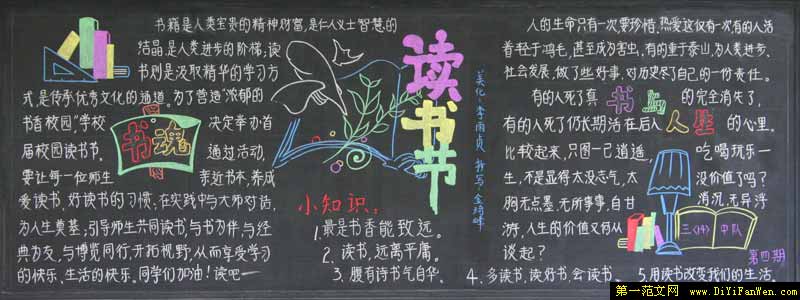 书籍是人类宝贵的精神财富,是仁人义士智慧的
结晶,是人类进步的阶梯;读
书则是汲取精华的学习方
式,是传承优秀文化的通道。为了营造"浓郁的
书香校园",学校 决定举办首
届校园读书节, 通过活动,
要让每一位师生 亲近书本,养成
爱读书,好读书的习惯,在实践中与大师对话,
为人生奠基,引导师生共同读书,与书为伴,与经
典为友,与博览同行,开拓视野,从而享受学习
的快乐、生活的快乐。同学们加油!读吧——
书魂
读书节
美化:李雨贞 书写:金琦峰
小知识:
1.最是书香能致远。
2.读书,远离平庸。
3.腹有诗书气自华。
4.多读书,读好书,会读书。
5.用读书改变我们的生活。
书与人生
人的生命只有一次,要珍惜,热爱这仅有一次,有的人活
着轻于鸿毛,甚至成为害虫,有的重于泰山,为人类进步、
社会发展,做了些好事,对历史尽了自己的一份责任。
有的人死了真 的完全消失了,
有的人死了仍长期活在后人 的心里。
比较起来,只图一己逍遥, 吃喝玩乐一
生,不是显得太没志气,太 没价值了吗?
胸无点墨,无所事事,自甘 消沉,无异浮
游,人生的价值又何从
谈起?
三(14) 中队
第四期
第一范文网 www.DiYiFanWen.com